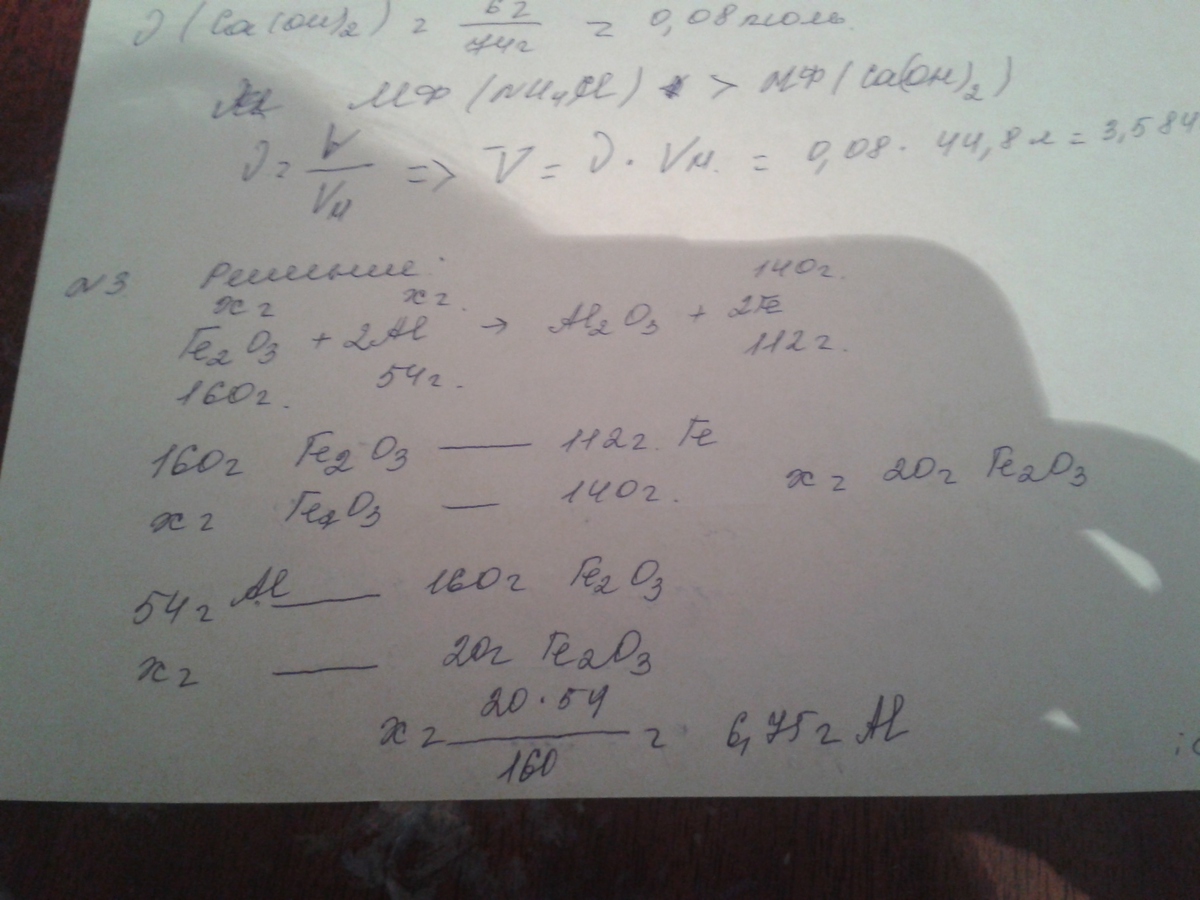 ν (Ca(OH)₂) = 6г/74г = 0,08 моль.
МФ (NH₄Cl) > МФ (Ca(OH)₂)
ν = V/Vм => V = ν · Vм. = 0,08 · 44,8 л = 3,584
№3 Решение:
x г x г. 140 г.
Fe₂O₃ + 2Al → Al₂O₃ + 2Fe
160 г. 54 г. 112 г.
160 г Fe₂O₃ — 112 г. Fe
x г Fe₂O₃ — 140 г. x = 20 г Fe₂O₃
54 г Al — 160 г Fe₂O₃
x г — 20 г Fe₂O₃
x = 20·54/160 = 6,75 г Al